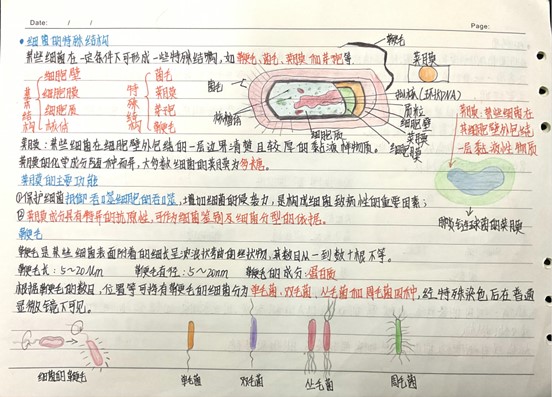 Date: / /
Page:
细菌的特殊结构
某些细菌在一定条件下可形成一些特殊结构，如鞭毛、菌毛、荚膜和芽孢等
鞭毛
荚膜
基本结构
细胞壁
细胞膜
细胞质
核质
特殊结构
菌毛
荚膜
芽孢
鞭毛
菌毛
核糖体
细胞质
拟核(环状DNA)
质粒
细胞壁
细胞膜
荚膜
荚膜：某些细菌在
某细胞壁外包绕
一层黏液性物质
荚膜：某些细菌在细胞壁外包绕的一层边界清楚且较厚的黏液性物质。
荚膜的化学成分随种而异，大多数细菌的荚膜为多糖。
荚膜的主要功能
①保护细菌抵御吞噬细胞的吞噬，增加细菌的侵袭力，是构成细菌致病性的重要因素；
②荚膜成分具有特异的抗原性，可作为细菌鉴别及细菌分型的依据。
肺炎链球菌的荚膜
鞭毛
鞭毛是某些细菌表面附着的细长呈波浪状弯曲的丝状物，其数目从一到数十根不等。
鞭毛长：5~20μm 鞭毛直径：5~20nm 鞭毛的成分：蛋白质
根据鞭毛的数目，位置等可将有鞭毛的细菌分为单毛菌、双毛菌、丛毛菌和周毛菌四种，经特殊染色后在普通
显微镜下可见。
细菌的鞭毛
单毛菌
双毛菌
丛毛菌
周毛菌